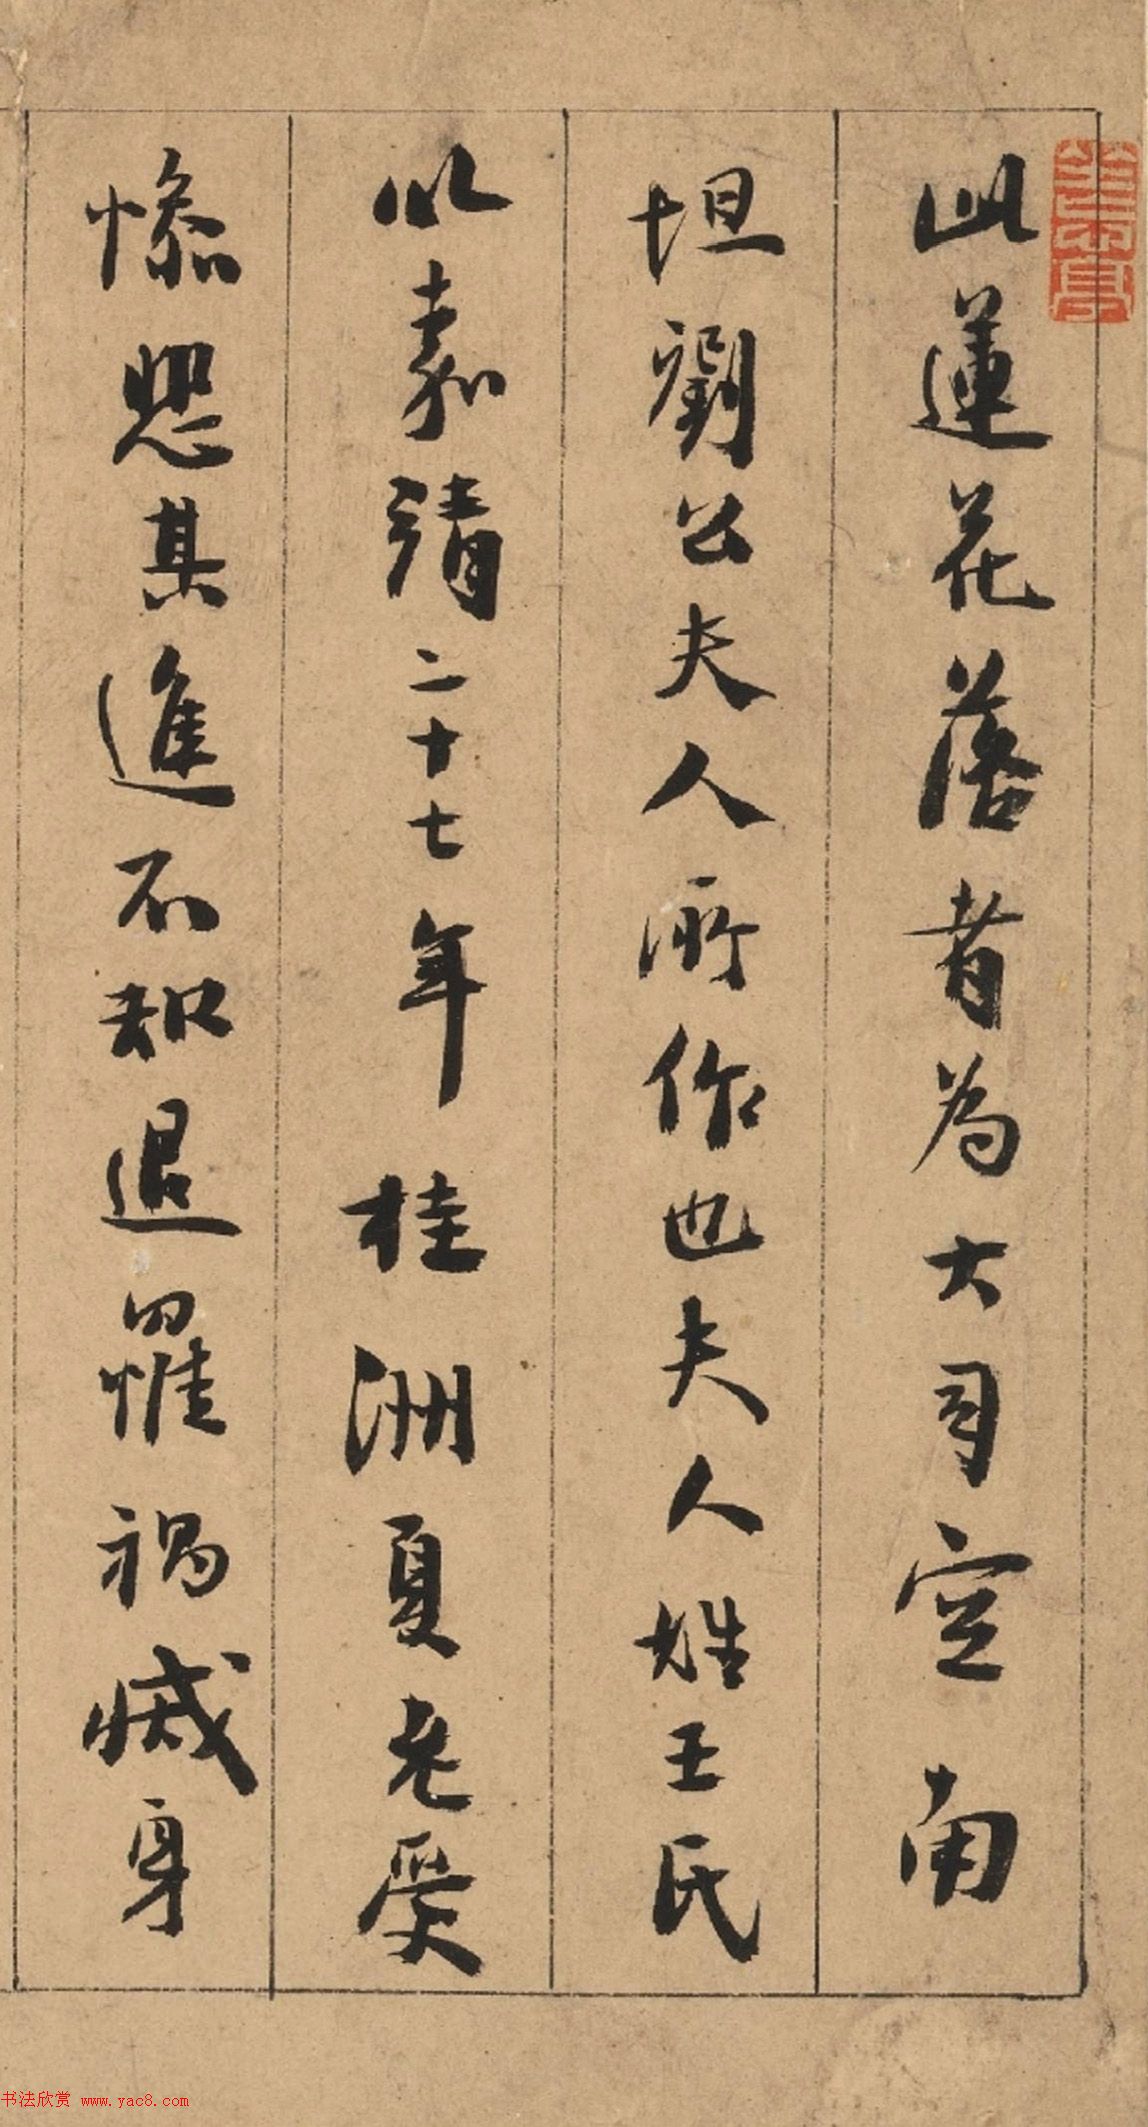 此蓮花落者為大司空南
坦劉公夫人所作也夫人姓王氏
以嘉靖二十七年桂洲夏老受
慘愍其進不知退罹禍戚身
书法欣赏 www.yac8.com